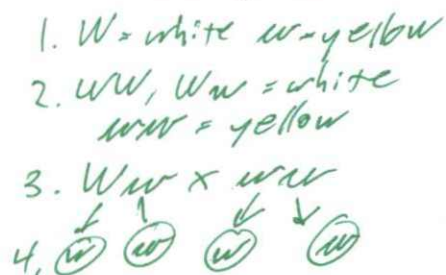 1. W = white w = yellow
2. WW, Ww = white
ww = yellow
3. Ww x ww
4. w w w w